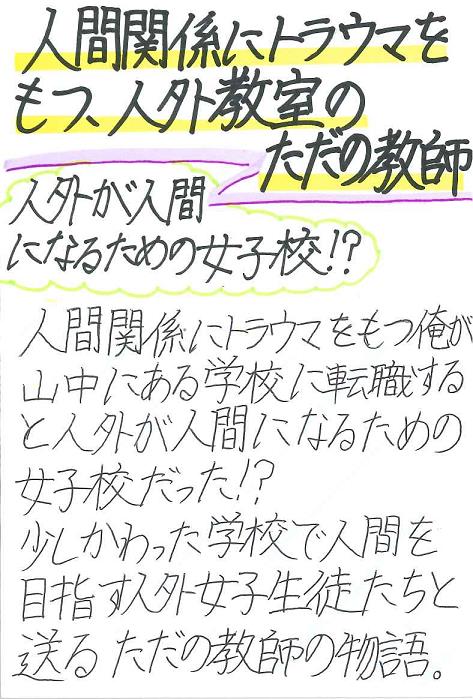 人間関係にトラウマを
もつ、人外教室の
ただの教師
人外が人間
になるための女子校!?
人間関係にトラウマをもつ俺が
山中にある学校に転職する
と人外が人間になるための
女子校だった!?
少しかわった学校で人間を
目指す人外女子生徒たちと
送るただの教師の物語。